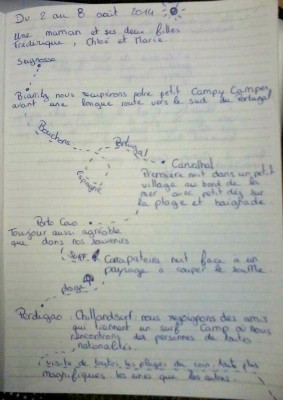 Du 2 au 8 août 2014
Une maman et ses deux filles
Frédérique, Chloé et Marie
Seignosse
Biarritz, nous récupérons notre petit Campy Camper
avant une longue route vers le sud du Portugal
Bouchons
Portugal
Espagne
Carvalhal
Première nuit dans un petit
village au bord de la
mer avec petit déj sur
la plage et baignade
Porto Covo
Toujour aussi agréable
que dans nos souvenirs
surf
Carrapateira nuit face à un
paysage à couper le souffle
plage
Perdigao : Chillandsurf : nous rejoignons des amis
qui tiennent un surf Camp où nous
rencontrons des personnes de toutes
nationalités.
visite de toutes les plages du coin, toute plus
magnifiques les unes que les autres.